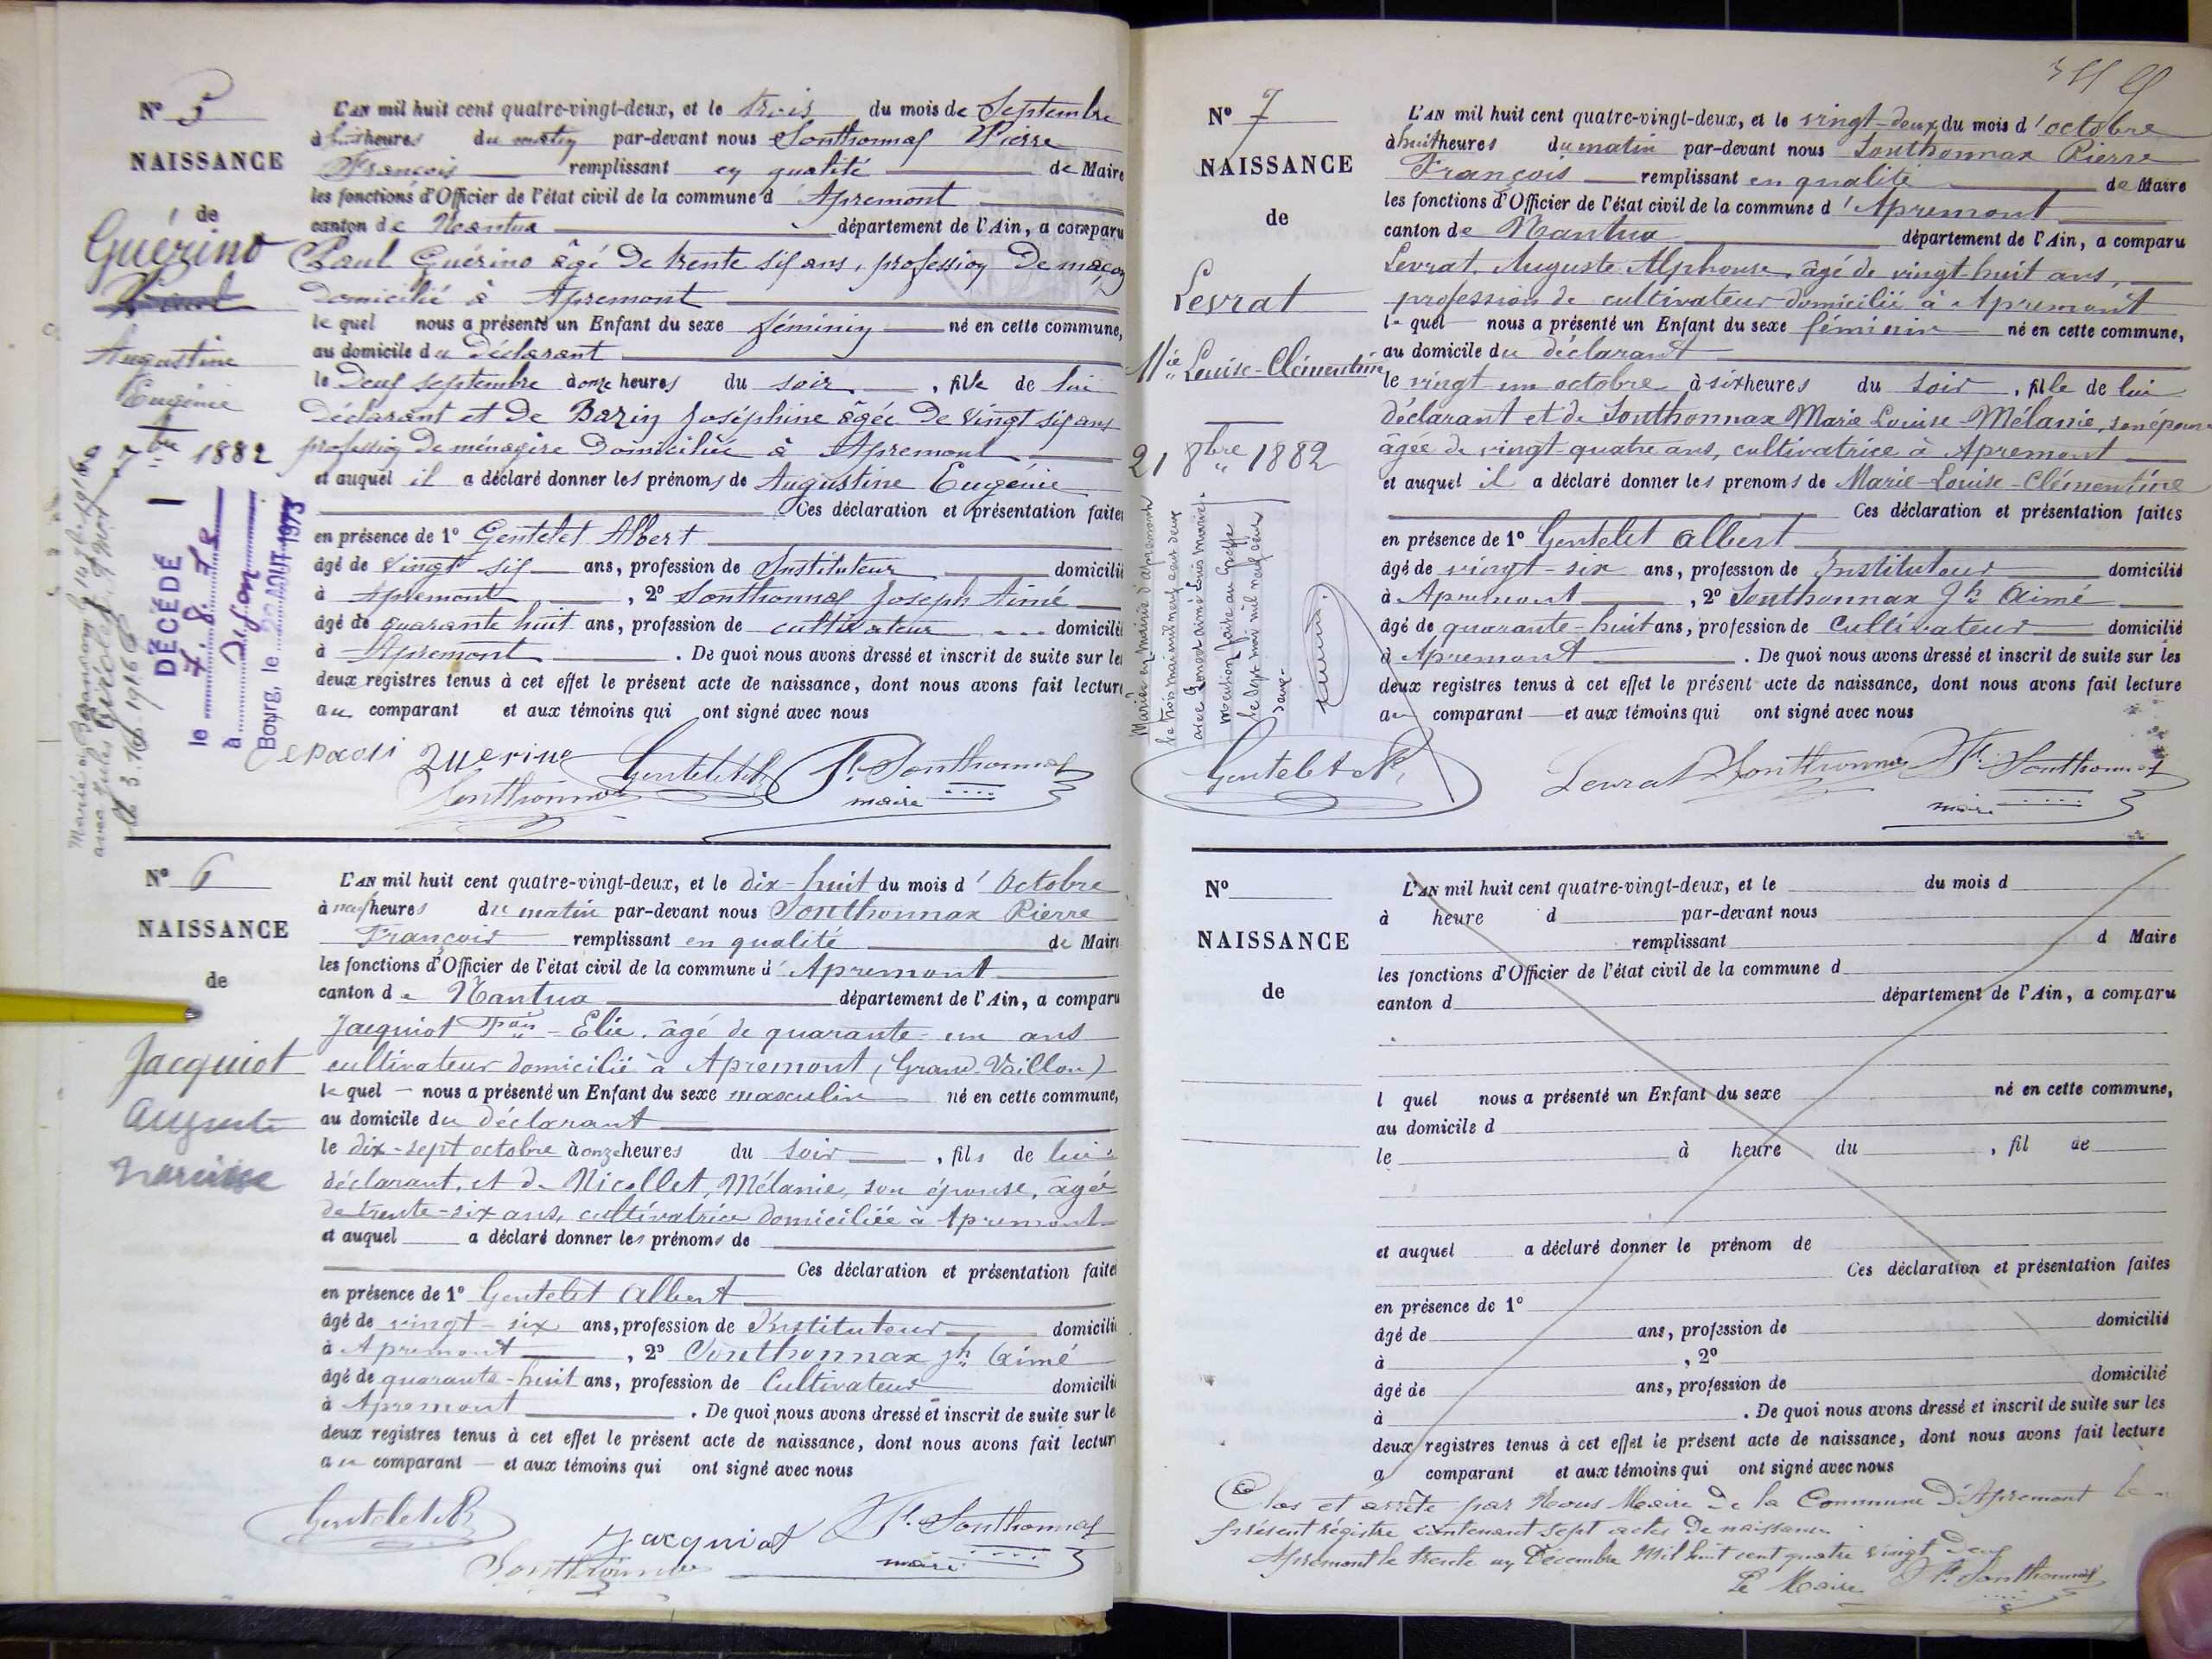 Nº 5
NAISSANCE
de
Guérino
Augustine
Eugénie
7bre 1882
DÉCÉDÉ
le 7.8.73
à Dijon
Bourg, le AOUT 1973
L'AN mil huit cent quatre-vingt-deux, et le trois du mois de Septembre
à huit heures du matin par-devant nous Sonthonnax Pierre
François remplissant en qualité de Maire
les fonctions d'Officier de l'état civil de la commune d'Apremont
canton de Nantua département de l'Ain, a comparu
Paul Guérino âgé de trente six ans, profession de maçon
Domicilié à Apremont
lequel nous a présenté un Enfant du sexe féminin né en cette commune,
au domicile du Déclarant
le Deux septembre à onze heures du soir, fille de lui
Déclarant et de Bazin Joséphine âgée de vingt six ans
profession de ménagère Domiciliée à Apremont
et auquel il a déclaré donner les prénoms de Augustine Eugénie
Ces déclaration et présentation faites
en présence de 1º Gentelet Albert
âgé de vingt six ans, profession de Instituteur domicilié
à Apremont, 2º Sonthonnax Joseph Aimé
âgé de quarante huit ans, profession de cultivateur domicilié
à Apremont. De quoi nous avons dressé et inscrit de suite sur les
deux registres tenus à cet effet le présent acte de naissance, dont nous avons fait lecture
au comparant et aux témoins qui ont signé avec nous
Gentelet A
Sonthonnax
F. Sonthonnax
maire
Nº 6
NAISSANCE
de
Jacquiot
Auguste
Narcisse
L'AN mil huit cent quatre-vingt-deux, et le dix-huit du mois d'Octobre
à neuf heures du matin par-devant nous Sonthonnax Pierre
François remplissant en qualité de Maire
les fonctions d'Officier de l'état civil de la commune d'Apremont
canton de Nantua département de l'Ain, a comparu
Jacquiot Fois-Elie, âgé de quarante-un ans
cultivateur domicilié à Apremont, (Grand-Vaillon)
lequel nous a présenté un Enfant du sexe masculin né en cette commune,
au domicile du déclarant
le dix-sept octobre à onze heures du soir, fils de lui
déclarant, et de Nicollet, Mélanie, son épouse, âgée
de trente-six ans, cultivatrice domiciliée à Apremont
et auquel a déclaré donner les prénoms de
Ces déclaration et présentation faites
en présence de 1º Gentelet Albert
âgé de vingt-six ans, profession de Instituteur domicilié
à Apremont, 2º Sonthonnax Jh Aimé
âgé de quarante-huit ans, profession de Cultivateur domicilié
à Apremont. De quoi nous avons dressé et inscrit de suite sur les
deux registres tenus à cet effet le présent acte de naissance, dont nous avons fait lecture
au comparant et aux témoins qui ont signé avec nous
Gentelet A
Jacquiot
F. Sonthonnax
Sonthonnax
maire
Nº 7
NAISSANCE
de
Levrat
Mie Louise-Clémentine
21 8bre 1882
Mariée en mairie d'Apremont
le trois mai mil neuf cent deux
mention faite au Greffe
le sept mai mil neuf cent
deux.
L'AN mil huit cent quatre-vingt-deux, et le vingt-deux du mois d'octobre
à huit heures du matin par-devant nous Sonthonnax Pierre
François remplissant en qualité de Maire
les fonctions d'Officier de l'état civil de la commune d'Apremont
canton de Nantua département de l'Ain, a comparu
Levrat, Auguste Alphonse, âgé de vingt-huit ans,
profession de cultivateur domicilié à Apremont
lequel nous a présenté un Enfant du sexe féminin né en cette commune,
au domicile du déclarant
le vingt un octobre à six heures du soir, fille de lui
déclarant et de Sonthonnax Marie Louise Mélanie, son épouse
âgée de vingt-quatre ans, cultivatrice à Apremont
et auquel il a déclaré donner les prenoms de Marie-Louise-Clémentine
Ces déclaration et présentation faites
en présence de 1º Gentelet Albert
âgé de vingt-six ans, profession de Instituteur domicilié
à Apremont, 2º Sonthonnax Jh Aimé
âgé de quarante-huit ans, profession de Cultivateur domicilié
à Apremont. De quoi nous avons dressé et inscrit de suite sur les
deux registres tenus à cet effet le présent acte de naissance, dont nous avons fait lecture
au comparant et aux témoins qui ont signé avec nous
Gentelet A
Levrat Sonthonnax F. Sonthonnax
maire
Nº
NAISSANCE
de
L'AN mil huit cent quatre-vingt-deux, et le du mois d
à heure d par-devant nous
remplissant d Maire
les fonctions d'Officier de l'état civil de la commune d
canton d département de l'Ain, a comparu
l quel nous a présenté un Enfant du sexe né en cette commune,
au domicile d
le à heure du, fil de
et auquel a déclaré donner le prénom de
Ces déclaration et présentation faites
en présence de 1º
âgé de ans, profession de domicilié
à, 2º
âgé de ans, profession de domicilié
à. De quoi nous avons dressé et inscrit de suite sur les
deux registres tenus à cet effet le présent acte de naissance, dont nous avons fait lecture
a comparant et aux témoins qui ont signé avec nous
Clos et arrêté par Nous Maire de la Commune d'Apremont le
présent régistre contenant sept actes de naissance
Apremont le trente un Décembre Mil huit cent quatre vingt Deux
Le Maire F. Sonthonnax